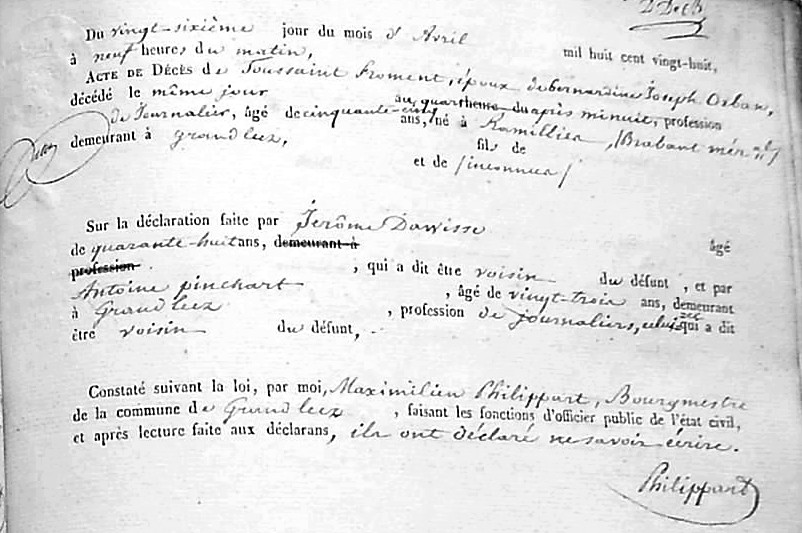 Du vingt-sixième jour du mois d'Avril mil huit cent vingt-huit,
à neuf heures du matin,
ACTE DE DÉCÈS de Toussaint Froment, époux de bernardine Joseph Orban,
décédé le même jour au quart heure du après minuit, profession
de Journalier, âgé de cinquante-cinq ans, né à Ramillies, (Brabant mér.nal)
demeurant à grand leez, fils de
et de (inconnus)
Sur la déclaration faite par Jerôme Dawisse âgé
de quarante-huit ans, demeurant à
profession , qui a dit être voisin du défunt , et par
Antoine pinchart , âgé de vingt-trois ans, demeurant
à Grand leez , profession de journaliers, celui qui a dit
être voisin du défunt,
Constaté suivant la loi, par moi, Maximilien Philippart, Bourgmestre
de la commune de Grand leez , faisant les fonctions d'officier public de l'état civil,
et après lecture faite aux déclarans, ils ont déclaré ne savoir écrire.
Philippart